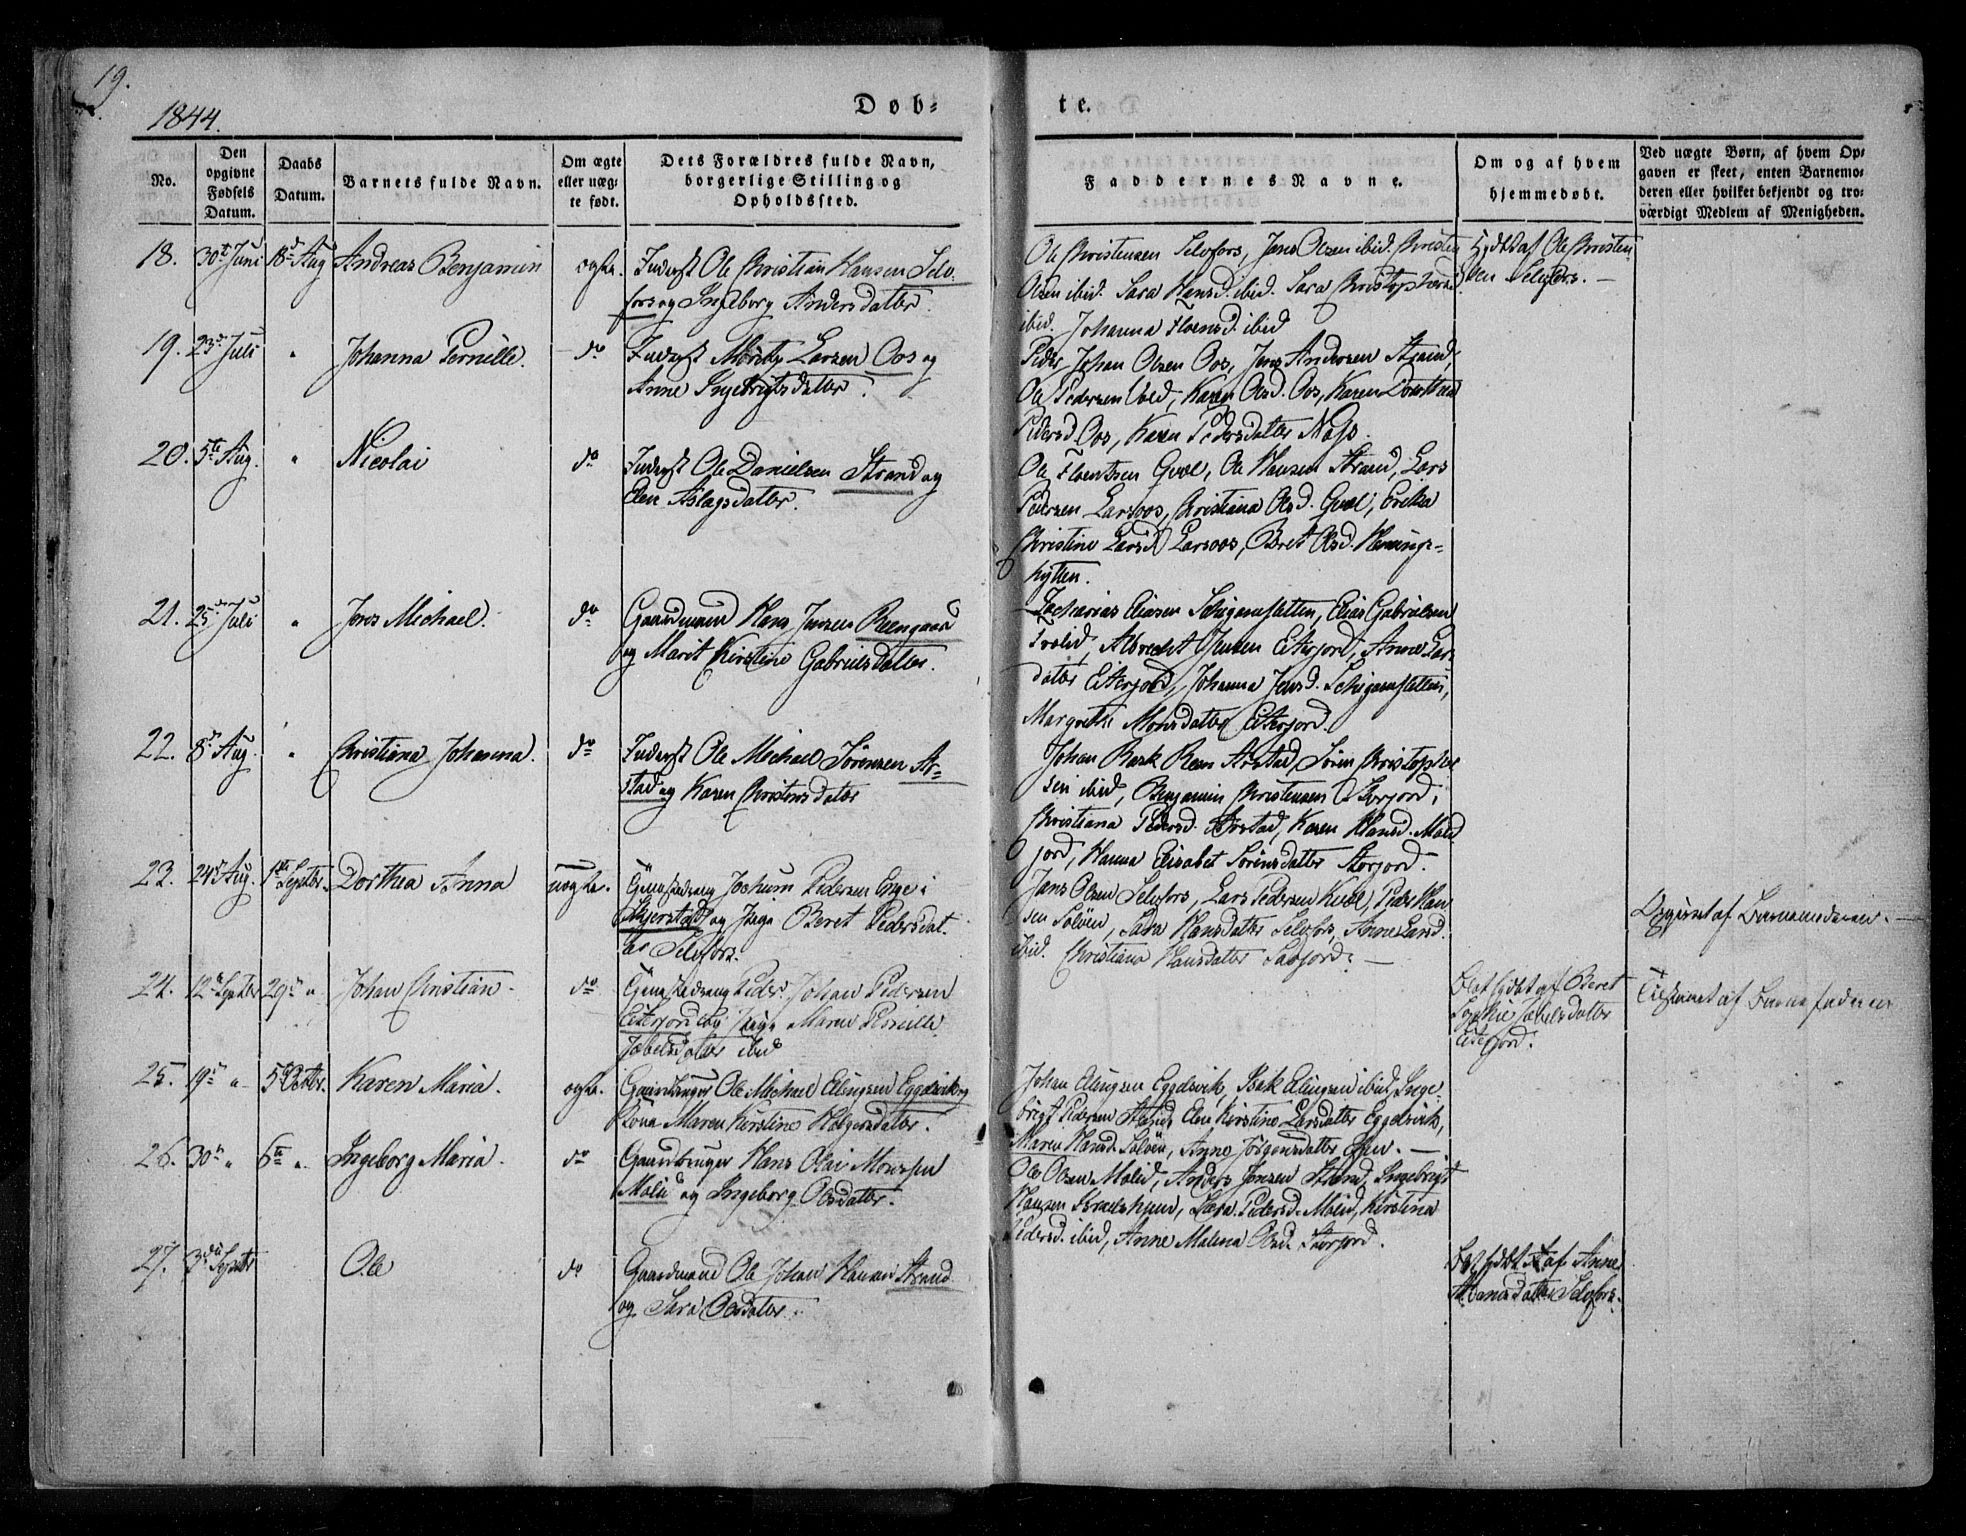 19.
1844.
Døb-
te.
No.
Den opgivne Fødsels Datum.
Daabs Datum.
Barnets fulde Navn.
Om ægte eller uæg-
te født.
Dets Forældres fulde Navn,
borgerlige Stilling og
Opholdssted.
Faddernes Navne.
Om og af hvem
hjemmedøbt.
Ved uægte Børn, af hvem Op-
gaven er skeet, enten Barnemo-
deren eller hvilket bekjendt og tro-
værdigt Medlem af Menigheden.
18. 30te Juni 18de Aug Andreas Benjamin ægte. Inderst Ole Christian Hansen Selv-
fors og Ingeborg Andersdatter.
Ole Christensen Selvfors, Jens Olsen ibid. Christen
Olsen ibid. Sara Hansd. ibid. Sara Christophersd
ibid. Johanna ibid
Hjdbt af Ole Christen
sen Selvfors. -
19. 23de Juli " Johanna Pernille. do Inderst Larsen Oos og
Anne Ingebrigtsdatter.
Peder Johan Olsen Oos, Jens Andersen Strand,
Ole Pedersen Karen Olsd. Oos, Karen Dorthea
Pedersd Oos, Karen Pedersdatter Næss.
20. 5te Aug. " Nicolai do Inderst Ole Danielsen Strand og
Elen Aslagsdatter.
Ole Ole Hansen Strand, Lars
Pedersen Larsoos, Christiana Olsd. Erika
Christine Larsd Larsoos, Beret Olsd.
hytten.
21. 25de Juli " Jens Michael. do Gaardmand Hans Jensen Reengaard
og Marit Kirstine Gabrielsdatter.
Zacharias Eliasen Elias Gabrielsen
Albrecht Jensen Eiterjord, Anne Lars
datter Eiterjord, Johanna Jensd.
Margrethe Monsdatter Eiterjord.
22. 8de Aug. " Christiana Johanna. do Inderst Ole Michael Sørensen Ar-
stad og Karen Christensdatter
Johan Arstad, Søren Christopher
sen ibid, Benjamin Christensen Storjord,
Christiana Pedersd. Arstad, Karen Hansd. Mold
jord, Hanna Elisabet Sørensdatter Storjord.
23. 24de Aug. 1ste Septbr. Dorthea Anna uægte. Jochum Pedersen Enge i
Skjerstad og Pige Beret Pedersdat-
ter Selvfors.
Jens Olsen Selvfors, Lars Pedersen Peder Han
sen Soløen, Sara Hansdatter Selvfors, Anne
ibid. Christiana Hansdatter -
Opgivet af Barnemoderen. -
24. 12te Septbr 29de " Johan Christian - do Peder Johan Pedersen
Eiterjord og Pige Maren Pernille
Jabelsdatter ibid
af Beret
Sophie Jabelsdatter
Eiterjord.
af Barnefaderen
25. 19de " 5te Octbr. Karen Maria. ægte. Gaardbruger Ole Michael Ellingsen Eggesvik og
Kona Maren Kirstine Holgersdatter.
Johan Ellingsen Eggesvik, Isak Ellingsen ibid, Inge-
brigt Pedersen Elen Kirstine Larsdatter Eggesvik,
Maren Hansd. Soløen, Anne Jørgensdatter -
26. 30te " 6te ". Ingeborg Maria. do Gaardbruger Hans Olai Monssen
og Ingeborg Olsdatter.
Ole Olsen Anders Jensen Strand, Ingebrigt
Hansen Sara Pedersd. Kirstina
Pedersd. ibid, Anne Malena Olsd. Storjord.
27. 3die Septbr Ole do Gaardmand Ole Johan Hansen Strand
og Sara Olsdatter.
af Anne
Hansdatter Selvfors.